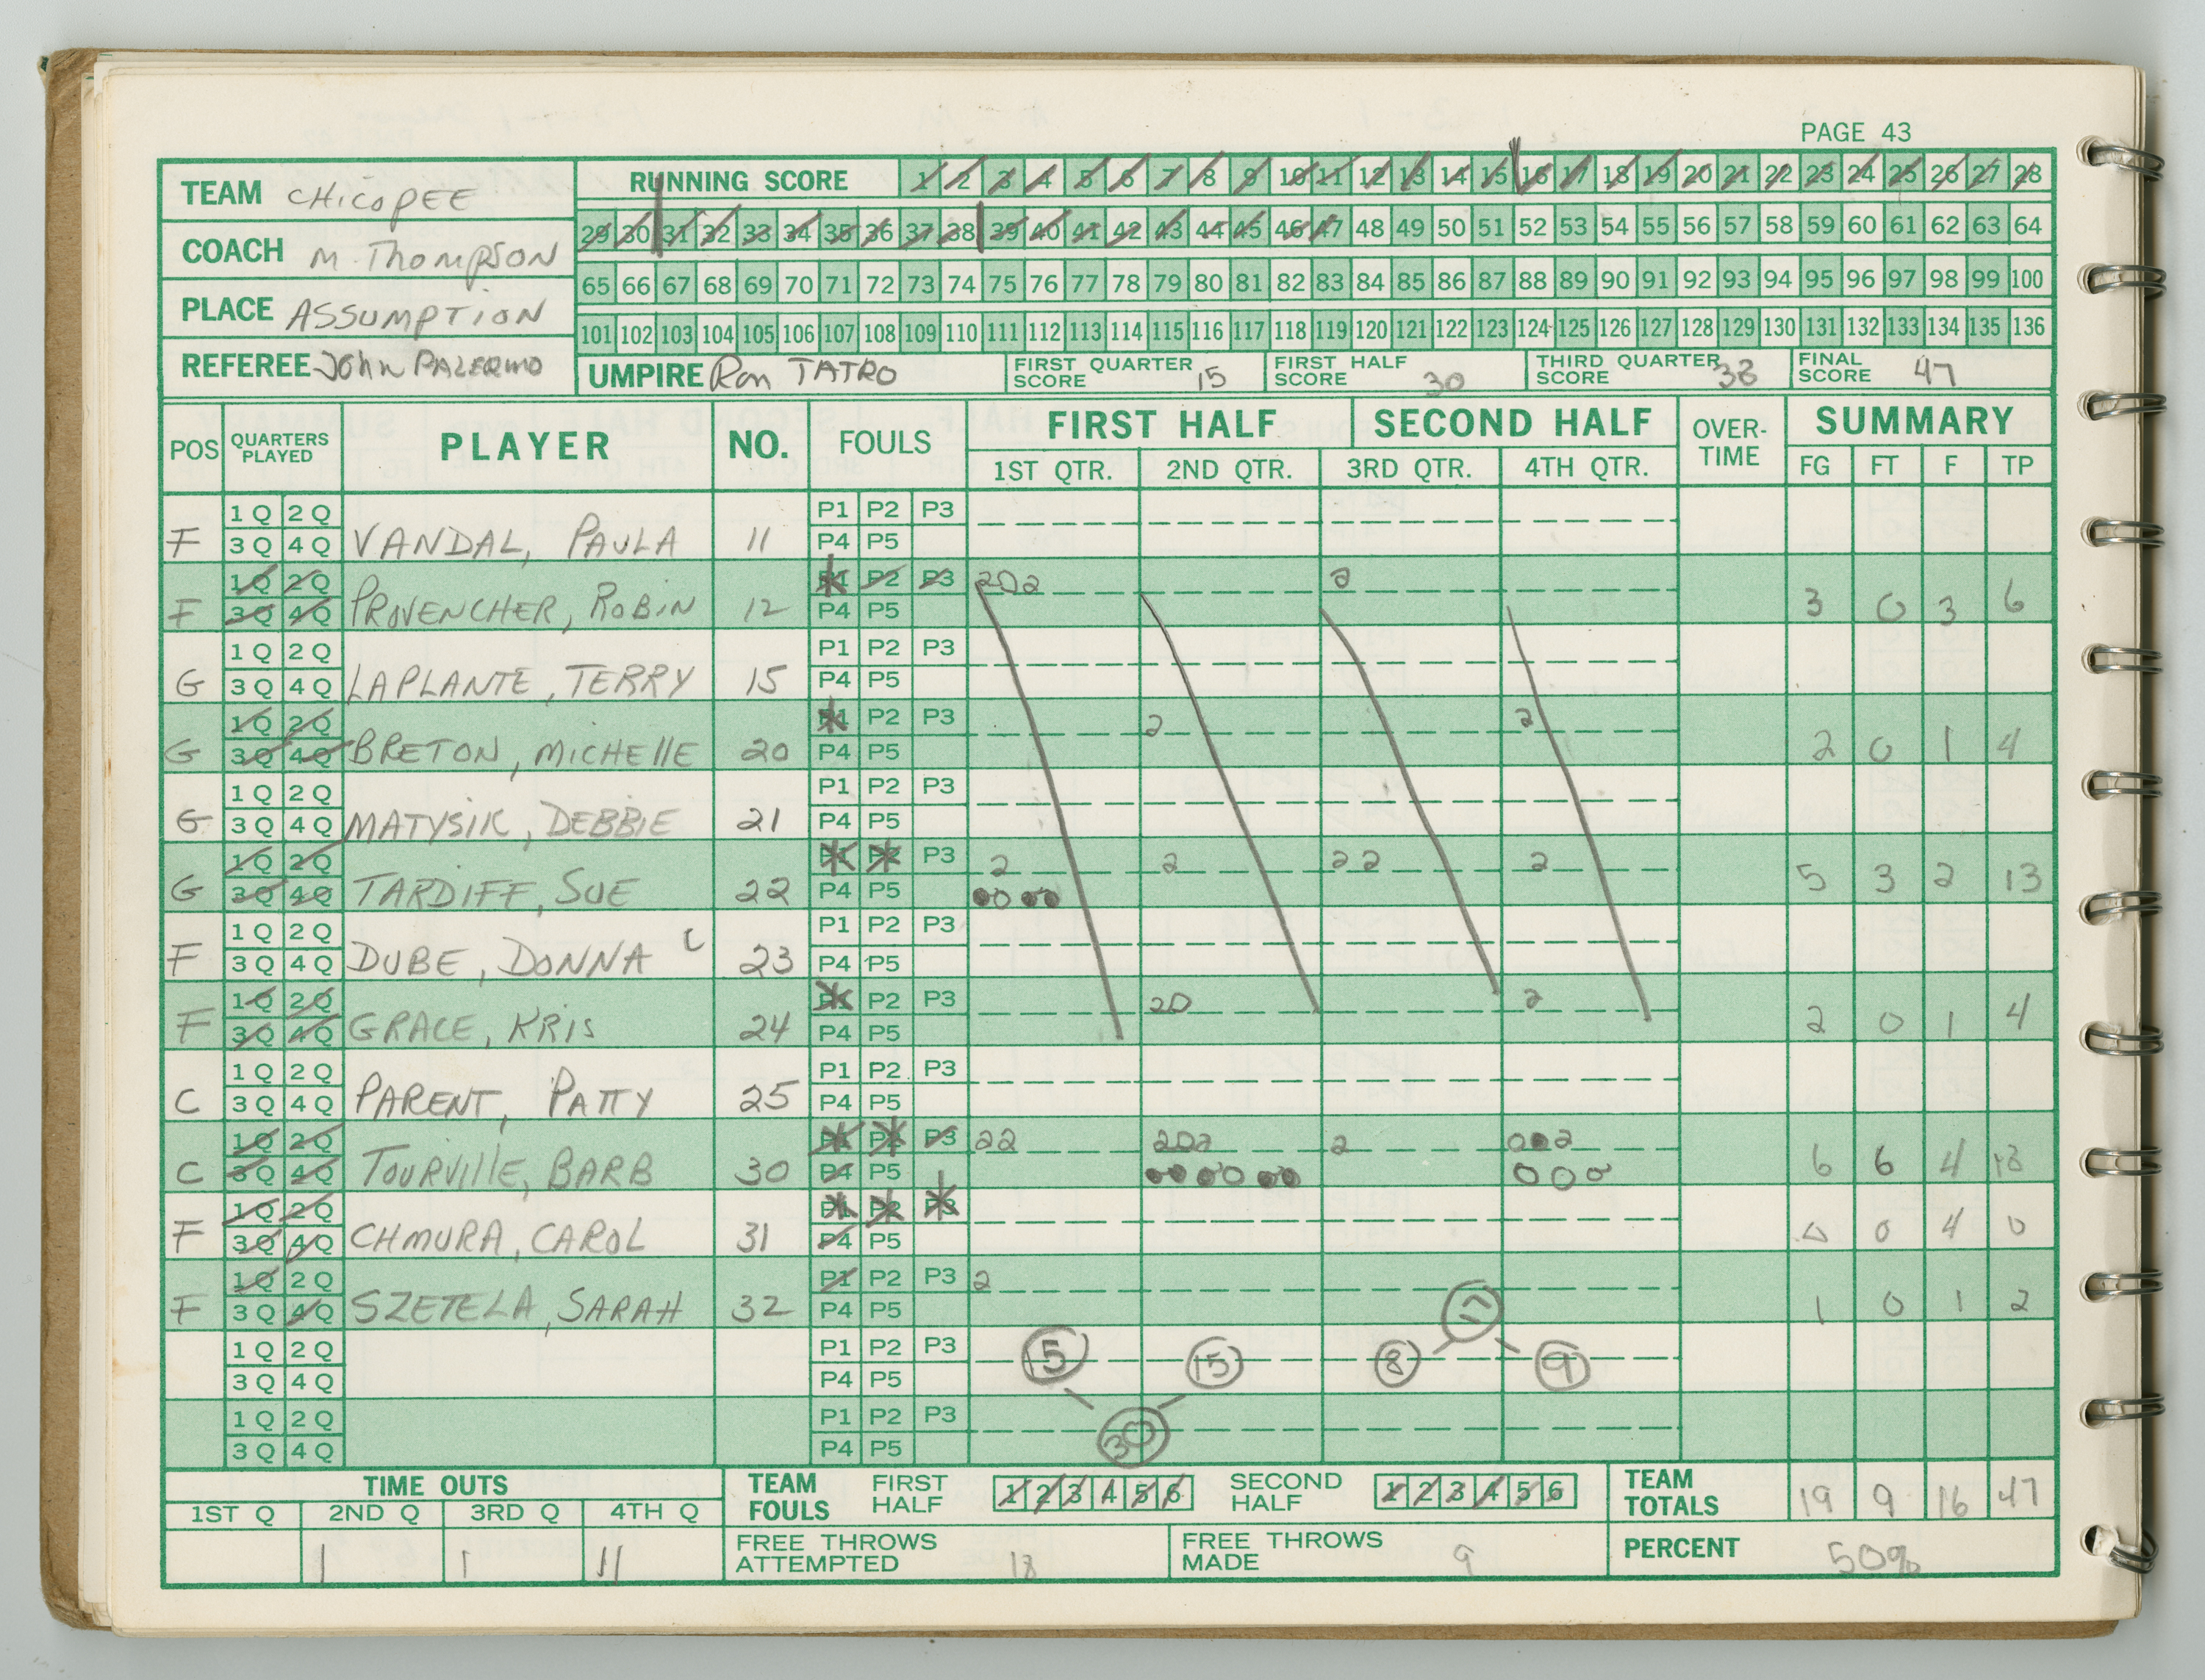 PAGE 43
TEAM CHICOPEE
COACH M. THOMPSON
PLACE ASSUMPTION
REFEREE JOHN PALERMO
RUNNING SCORE 1 2 3 4 5 6 7 8 9 10 11 12 13 14 15 16 17 18 19 20 21 22 23 24 25 26 27 28
29 30 31 32 33 34 35 36 37 38 39 40 41 42 43 44 45 46 47 48 49 50 51 52 53 54 55 56 57 58 59 60 61 62 63 64
65 66 67 68 69 70 71 72 73 74 75 76 77 78 79 80 81 82 83 84 85 86 87 88 89 90 91 92 93 94 95 96 97 98 99 100
101 102 103 104 105 106 107 108 109 110 111 112 113 114 115 116 117 118 119 120 121 122 123 124 125 126 127 128 129 130 131 132 133 134 135 136
UMPIRE Ron TATRO
FIRST QUARTER SCORE 15
FIRST HALF SCORE 30
THIRD QUARTER SCORE 38
FINAL SCORE 47
POS QUARTERS PLAYED PLAYER NO. FOULS FIRST HALF SECOND HALF OVER-TIME SUMMARY
1ST QTR. 2ND QTR. 3RD QTR. 4TH QTR. FG FT F TP
1Q 2Q P1 P2 P3
F 3Q 4Q VANDAL, PAULA 11 P4 P5
1Q 2Q P1 P2 P3 202 2
F 3Q 4Q PROVENCHER, ROBIN 12 P4 P5 3 0 3 6
1Q 2Q P1 P2 P3
G 3Q 4Q LAPLANTE, TERRY 15 P4 P5
1Q 2Q P1 P2 P3 2 2
G 3Q 4Q BRETON, MICHELLE 20 P4 P5 2 0 1 4
1Q 2Q P1 P2 P3
G 3Q 4Q MATYSIK, DEBBIE 21 P4 P5
1Q 2Q P1 P2 P3 2 2 22 2
G 3Q 4Q TARDIFF, SUE 22 P4 P5 5 3 2 13
1Q 2Q P1 P2 P3
F 3Q 4Q DUBE, DONNA C 23 P4 P5
1Q 2Q P1 P2 P3 20 2
F 3Q 4Q GRACE, KRIS 24 P4 P5 2 0 1 4
1Q 2Q P1 P2 P3
C 3Q 4Q PARENT, PATTY 25 P4 P5
1Q 2Q P1 P2 P3 22 202 2 2
C 3Q 4Q TOURVILLE, BARB 30 P4 P5 6 6 4 18
1Q 2Q P1 P2 P3
F 3Q 4Q CHMURA, CAROL 31 P4 P5 0 0 4 0
1Q 2Q P1 P2 P3 2
F 3Q 4Q SZETELA, SARAH 32 P4 P5 1 0 1 2
17
1Q 2Q P1 P2 P3 15 15 8 9
3Q 4Q P4 P5
1Q 2Q P1 P2 P3 30
3Q 4Q P4 P5
TIME OUTS
1ST Q 2ND Q 3RD Q 4TH Q
1 1 11
TEAM FOULS FIRST HALF 1 2 3 4 5 6 SECOND HALF 1 2 3 4 5 6
TEAM TOTALS 19 9 16 47
FREE THROWS ATTEMPTED 18
FREE THROWS MADE 9
PERCENT 50%